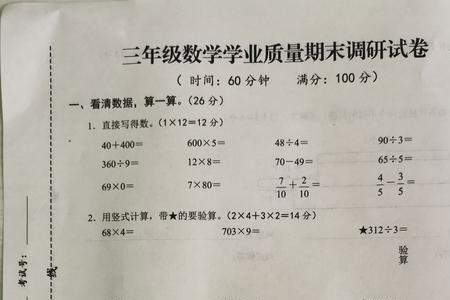 三年级数学学业质量期末调研试卷
（ 时间：60分钟 满分：100分）
一、看清数据，算一算。（26分）
1. 直接写得数。（1×12＝12分）
40＋400＝ 600×5＝ 48÷4＝ 90÷3＝
360÷9＝ 12×8＝ 70－49＝ 65÷5＝
69×0＝ 7×80＝ 7/10＋2/10＝ 4/5－3/5＝
2. 用竖式计算，带★的要验算。（2×4＋3×2＝14分）
68×4＝ 703×9＝ ★312÷3＝
验算
考试号：
线